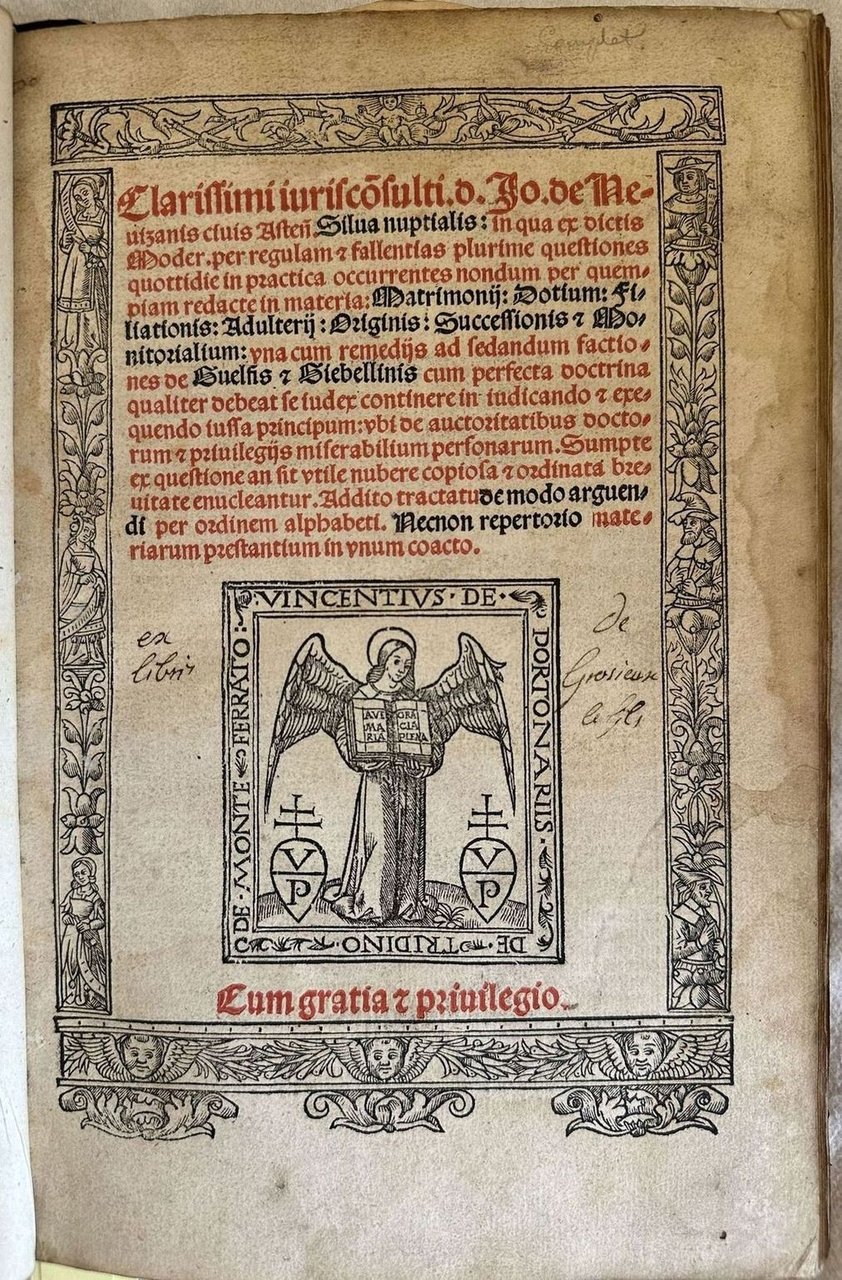 Complet
Clarissimi iuriscõsulti.d.Jo.de Ne-
uizanis ciuis Asteñ.Silua nuptialis: in qua ex dictis
Moder.per regulam ⁊ fallentias plurime questiones
quottidie in practica occurrentes nondum per quem-
piam redacte in materia: Matrimonij: Dotium: Fi-
liationis: Adulterij: Originis: Successionis ⁊ Mo-
nitorialium: vna cum remedijs ad sedandum factio-
nes de Guelfis ⁊ Giebellinis cum perfecta doctrina
qualiter debeat se iudex continere in iudicando ⁊ exe-
quendo iussa principum: vbi de auctoritatibus docto-
rum ⁊ priuilegijs miserabilium personarum. Sumpte
ex questione an sit vtile nubere copiosa ⁊ ordinata bre-
uitate enucleantur. Addito tractatu de modo arguen-
di per ordinem alphabeti. Necnon repertorio mate-
riarum prestantium in vnum coacto.
VINCENTIVS · DE ·
PORTONARIIS ·
DE · TRIDINO ·
DE · MONTE FERRATO :
AVE GRA
MA CIA
RIA PLENA
V P
V P
ex
libris
de
Grosieux
le fils
Cum gratia ⁊ priuilegio.